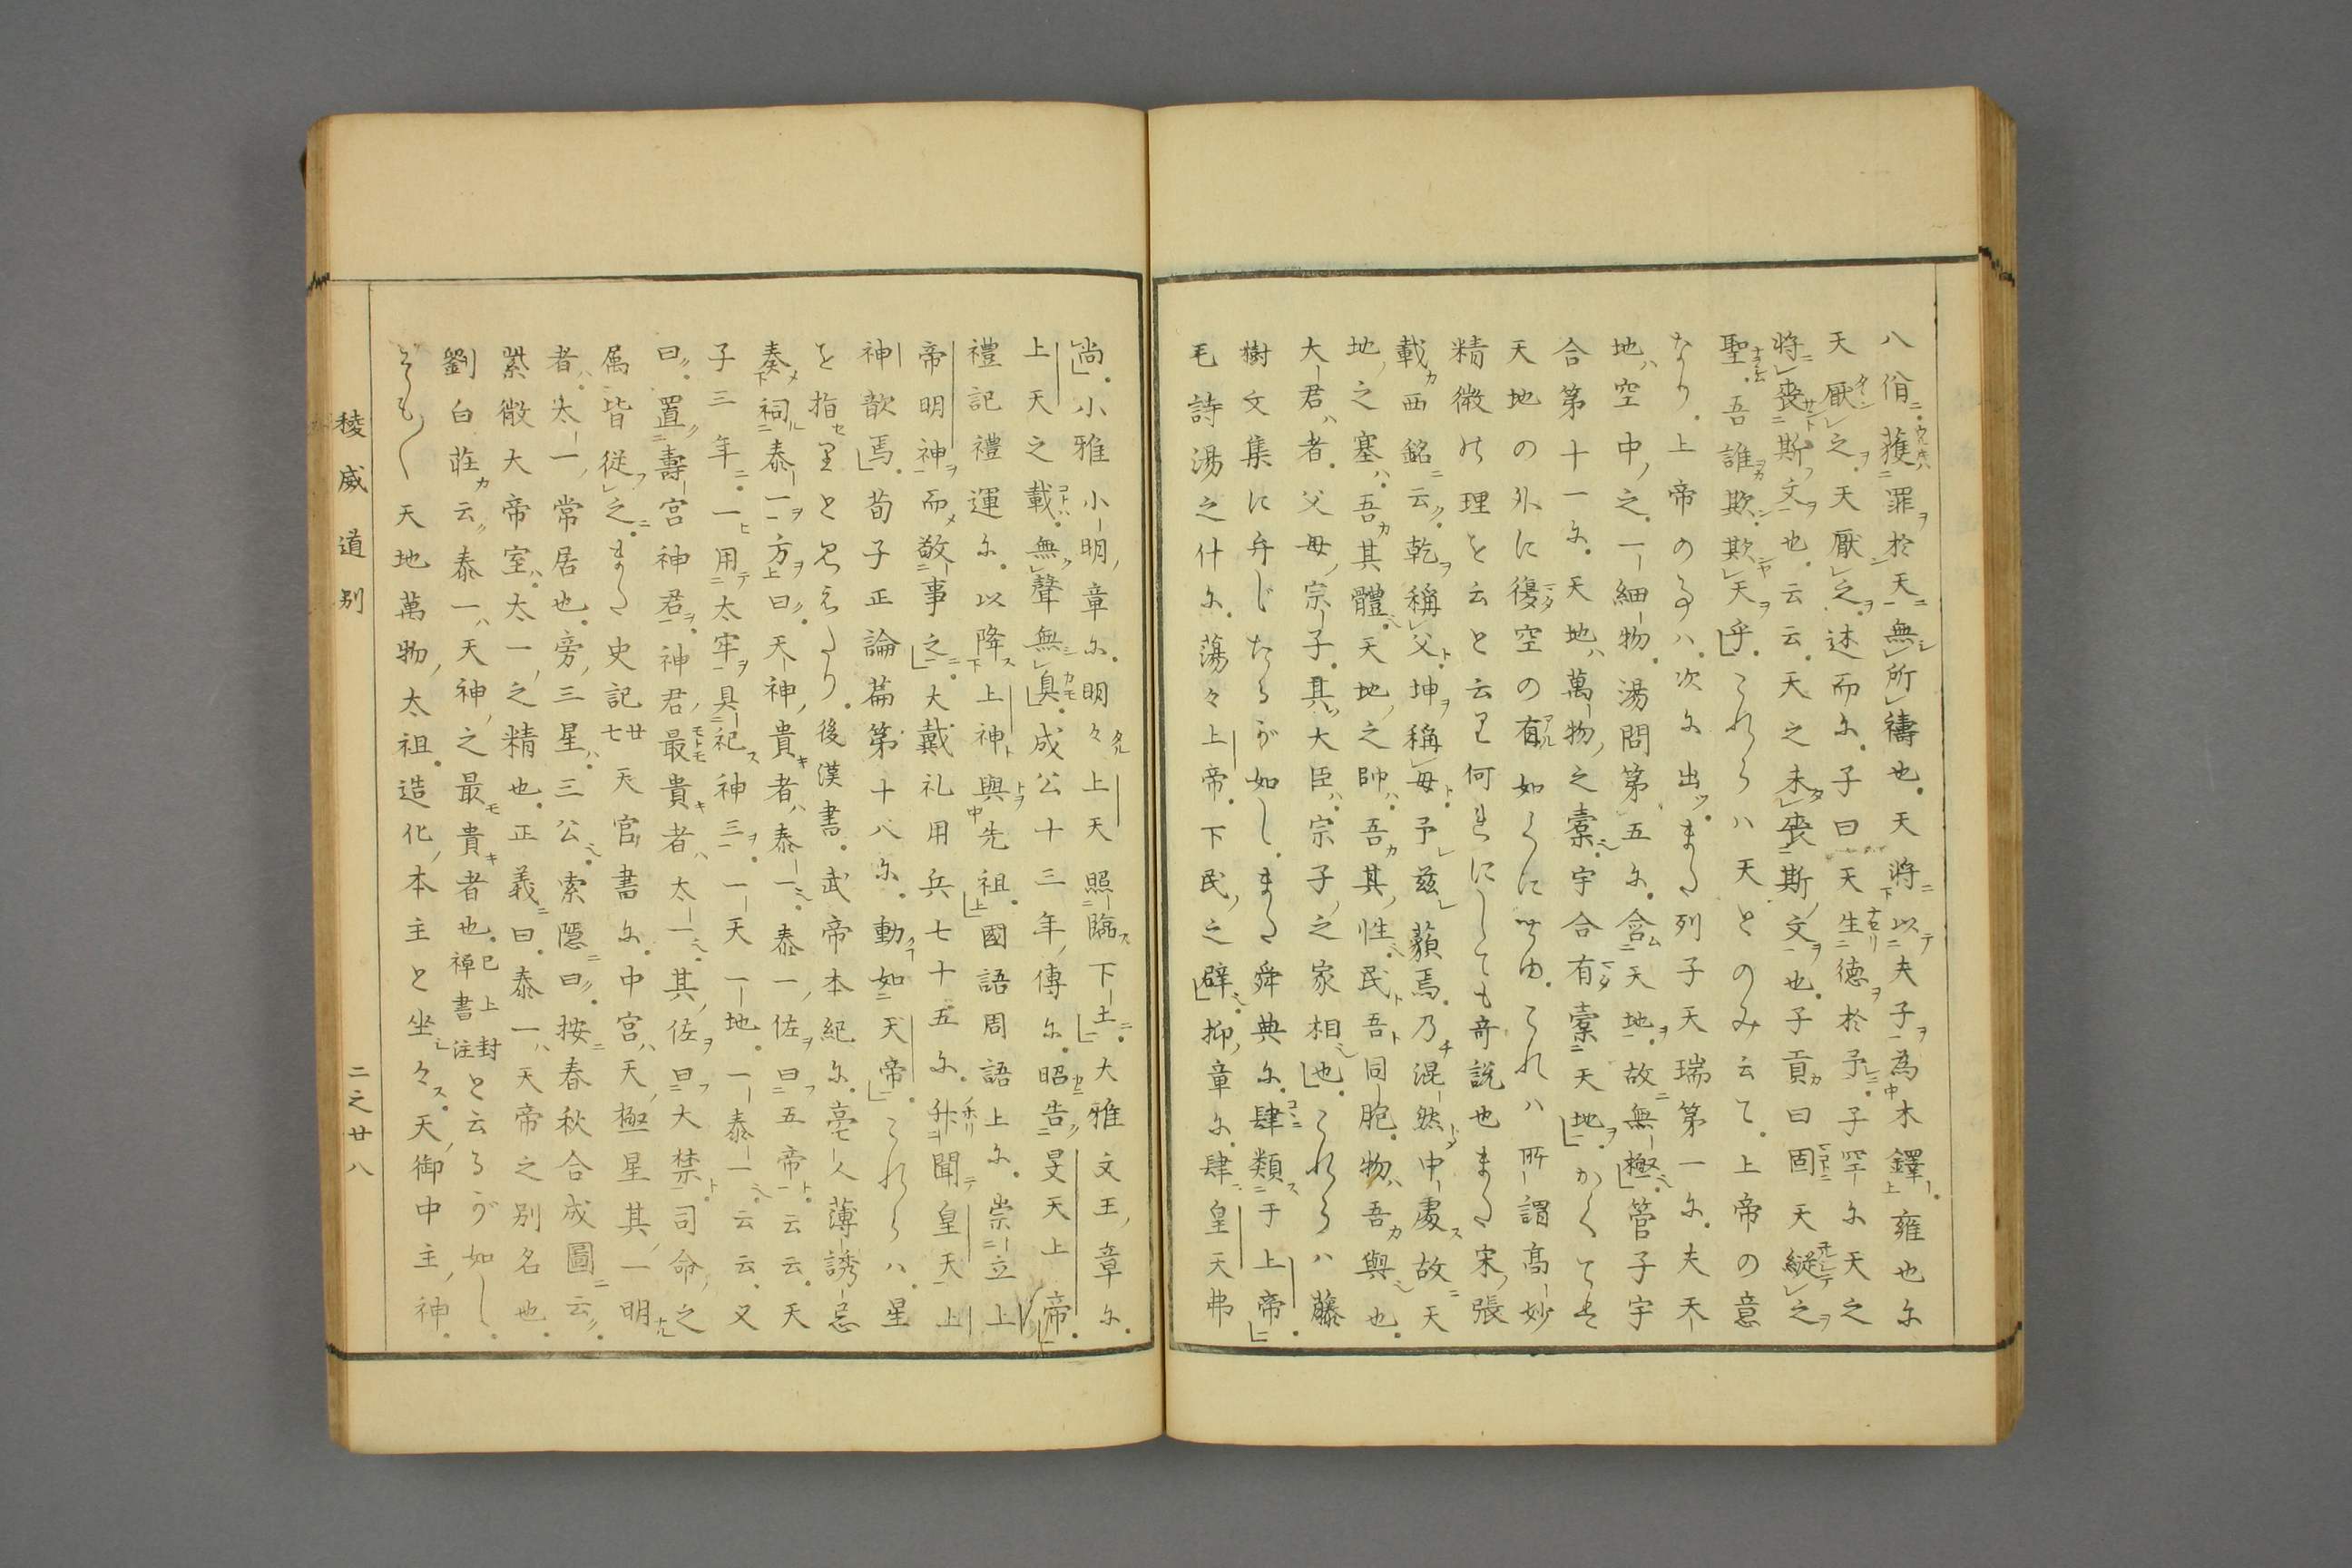 八佾獲罪於天無所禱也。天將以夫子為木鐸。雍也尓
天厭之。天厭之。述而尓。子曰天生德於予。子罕尓天之
將喪斯文也。云云。天之未喪斯文也。子貢曰固天縱之
聖。吾誰欺。欺天乎。これらハ天とのみ云て。上帝の意
なり。上帝の事ハ。次尓出ツ。また列子天瑞第一尓。夫天
地空中之一細物。湯問第五尓。含天地。故無極。管子宇
合第十一尓。天地萬物之橐。宇合有橐天地。かくてそ
天地の外に復空の有如くに聞ゆ。これハ所謂高妙
精微の理を云と云て何れにしても奇說也また宋張
載西銘云。乾稱父。坤稱母。予茲藐焉。乃混然中處故天
地之塞。吾其體。天地之帥。吾其性。民吾同胞。物吾與也。
大君者。父母宗子。其大臣。宗子之家相也。これらハ藤
樹文集に弁じたるが如し。また舜典尓。肆類于上帝。
毛詩湯之什尓。蕩々上帝。下民之辟。抑章尓。肆皇天弗
尚。小雅小明章尓。明々上天照臨下土。大雅文王章尓。
上天之載。無聲無臭。成公十三年傳尓。昭告昊天上帝。
禮記禮運尓。以降上神與先祖。國語周語上尓。崇立上
帝明神而敬事之。大戴礼用兵七十五尓。升聞皇天上
神歆焉。荀子正論篇第十八尓。動如天帝。これらハ。星
を指せりと見えたり。後漢書。武帝本紀尓。亳人薄誘忌
奏祠泰一方曰。天神貴者泰一。泰一佐曰五帝。云云。天
子三年一用太牢具祀神三。一天一地。一泰一。云云。又
曰。置壽宮神君。神君最貴者太一。其佐曰大禁司命之
属皆從之。また史記廿七天官書尓。中宮天極星其一明
者。太一常居也。旁三星三公。索隱曰。按春秋合成圖云。
紫微大帝室。太一之精也。正義曰。泰一天帝之別名也。
劉白莊云。泰一。天神之最貴者也。已上封禅書注と云るが如し。
そも〱天地萬物太祖。造化本主と坐々ス。天御中主神。
稜威道別
二之廿八